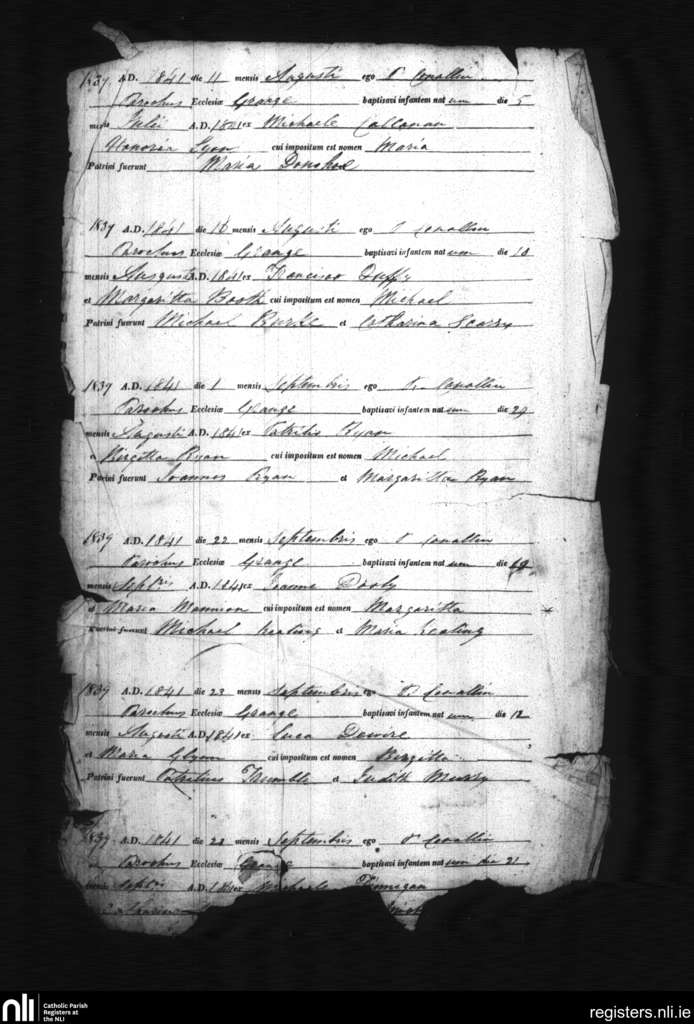 1839 A.D. 1841 die 11 mensis Augusti ego P Conollin
Parochus Ecclesiæ Grange baptisavi infantem nat um die 5
mensis Julii A.D. 1841 ex Michaele Callanan
Honoria Lyon cui impositum est nomen Maria
Patrini fuerunt Maria Donohoe
1839 A.D. 1841 die mensis Augusti ego P Conollin
Parochus Ecclesiæ Grange baptisavi infantem nat um die 10
mensis Augusti A.D. 1841 ex Francisco Duffy
et Margaritta Booth cui impositum est nomen Michael
Patrini fuerunt Michael Burke et Catharina Scarry
1839 A.D. 1841 die 1 mensis Septembris ego P. Conollin
Parochus Ecclesiæ Grange baptisavi infantem nat um die 29
mensis Augusti A.D. 1841 ex Patritio Ryan
et Birgitta Ryan cui impositum est nomen Michael
Patrini fuerunt Joannes Ryan et Margaritta Ryan
1839 A.D. 1841 die 22 mensis Septembris ego P Conollin
Parochus Ecclesiæ Grange baptisavi infantem nat um die
mensis Septbris A.D. 1841 ex Joanne Dooly
et Maria Mannion cui impositum est nomen Margaritta
Patrini fuerunt Michael Keating et Maria Keating
1839 A.D. 1841 die 23 mensis Septembris ego P. Conollin
Parochus Ecclesiæ Grange baptisavi infantem nat um die 12
mensis Augusti A.D. 1841 ex Luca Dewire
et Maria Glynn cui impositum est nomen Birgitta
Patrini fuerunt Patritius Trumble et Judith Murry
1839 A.D. 1841 die 23 mensis Septembris ego P Conollin
Parochus Ecclesiæ Grange baptisavi infantem nat um die 21
mensis Septbris A.D. 1841 ex Michaele Finnigan
Catharina
nli Catholic Parish
Registers at
the NLI
registers.nli.ie